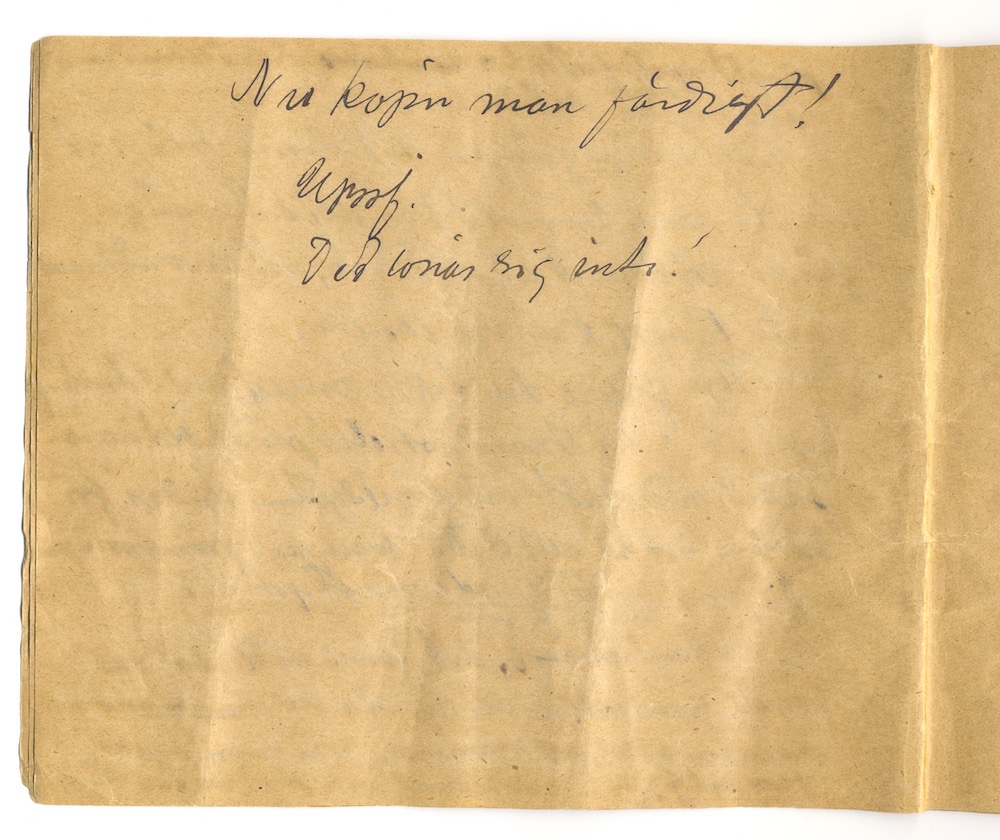 Nu köper man färdigt!
Uppsf.
Det lönar sig inte!